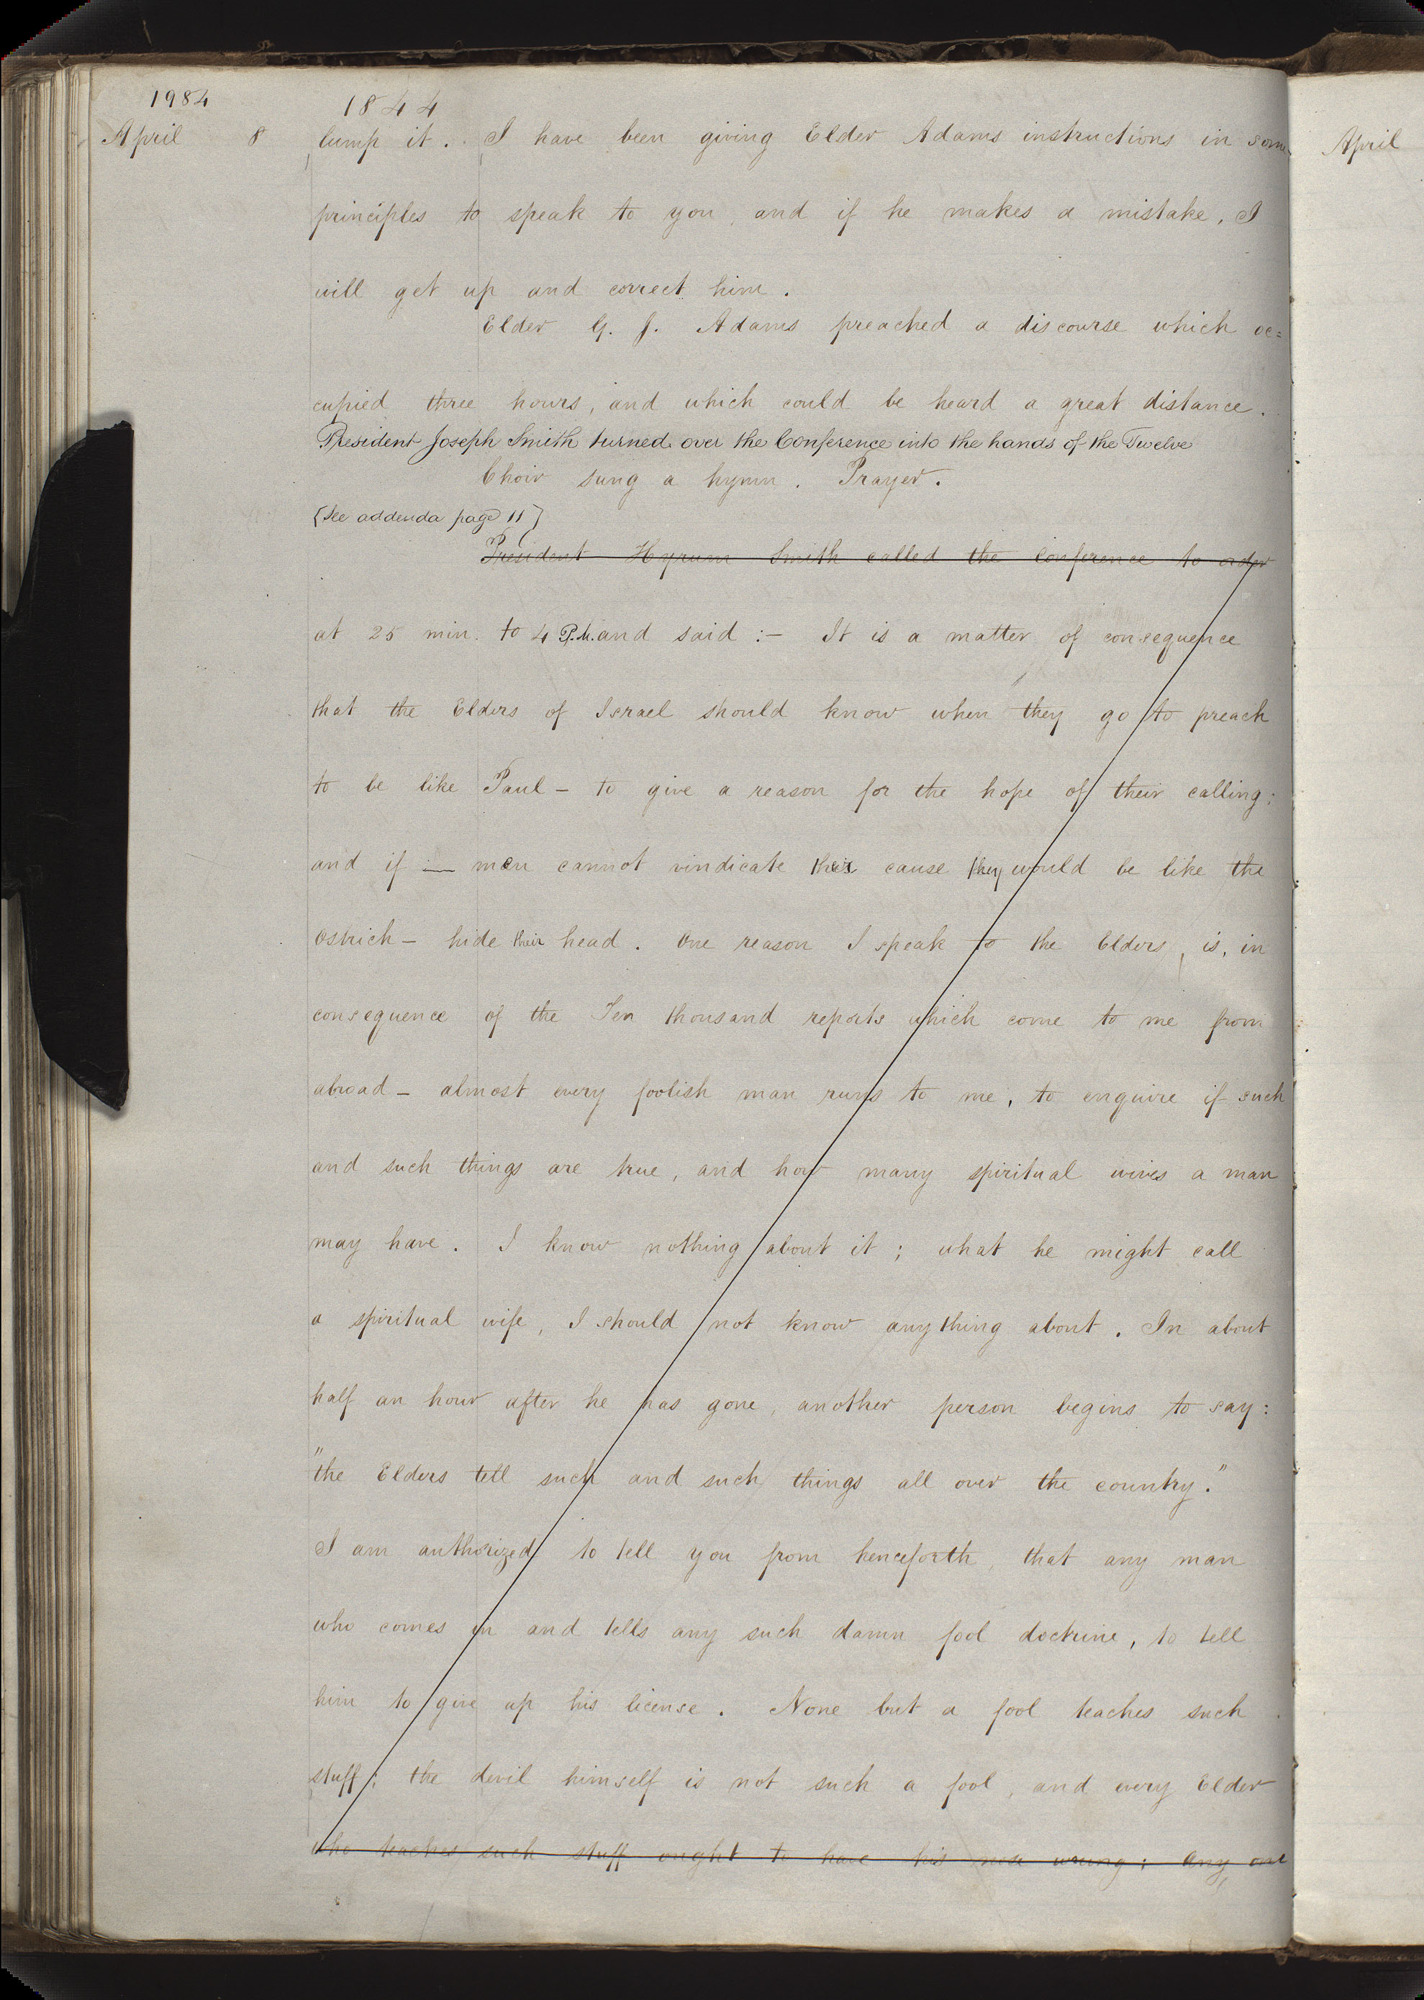 1984
1844
April 8 lump it. I have been giving Elder Adams instructions in some
principles to speak to you, and if he makes a mistake, I
will get up and correct him.
Elder G. J. Adams preached a discourse which oc=
cupied three hours, and which could be heard a great distance.
President Joseph Smith turned over the Conference into the hands of the Twelve
Choir sung a hymn. Prayer.
{See addenda page 11}
President Hyrum Smith called the conference to order
at 25 min. to 4 P.M. and said :— It is a matter of consequence
that the Elders of Israel should know when they go to preach
to be like Paul — to give a reason for the hope of their calling;
and if — men cannot vindicate their cause they would be like the
Ostrich — hide their head. One reason I speak to the Elders, is, in
consequence of the Ten thousand reports which come to me from
abroad — almost every foolish man runs to me, to enquire if such
and such things are true, and how many spiritual wives a man
may have. I know nothing about it; what he might call
a spiritual wife, I should not know anything about. In about
half an hour after he has gone, another person begins to say:
"the Elders tell such and such things all over the country."
I am authorized to tell you from henceforth, that any man
who comes in and tells any such damn fool doctrine, to tell
him to give up his license. None but a fool teaches such
stuff; the devil himself is not such a fool, and every Elder
who teaches such stuff ought to have his nose wrung; any one
April